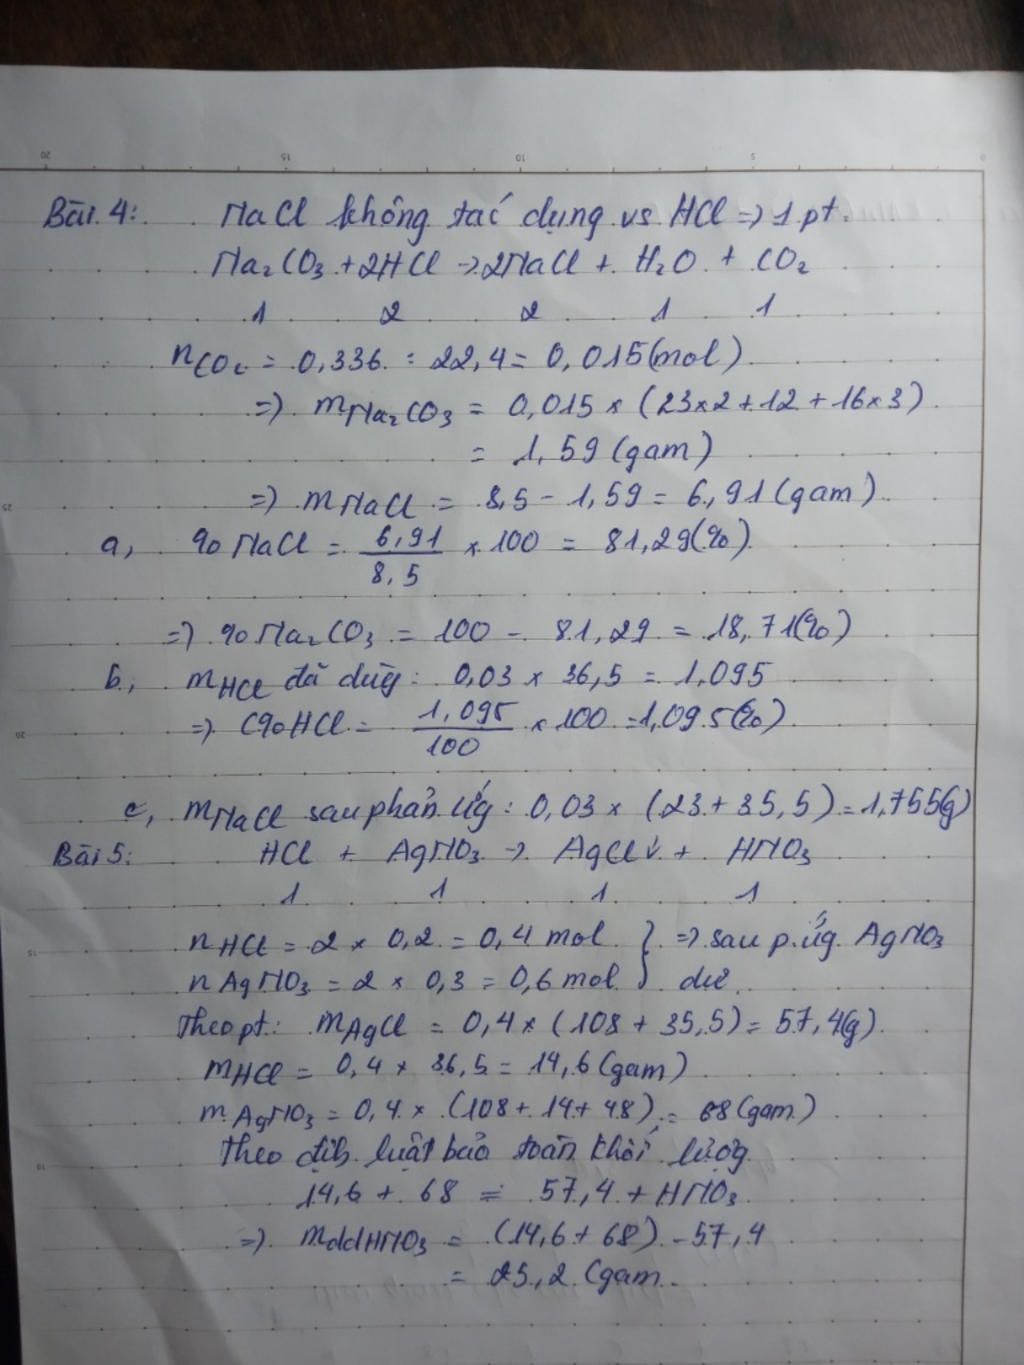 Bài 4: NaCl không tác dụng vs HCl => 1 pt.
Na₂CO₃ + 2HCl -> 2NaCl + H₂O + CO₂
1 2 2 1 1
nCO₂ = 0,336 : 22,4 = 0,015 (mol)
=> mNa₂CO₃ = 0,015 x (23x2 + 12 + 16x3)
= 1,59 (gam)
=> mNaCl = 8,5 - 1,59 = 6,91 (gam)
a, % NaCl = 6,91/8,5 x 100 = 81,29 (%)
=> % Na₂CO₃ = 100 - 81,29 = 18,71 (%)
b, mHCl đã dùg : 0,03 x 36,5 = 1,095
=> C% HCl = 1,095/100 x 100 = 1,095 (%)
c, mNaCl sau phản ứg : 0,03 x (23 + 35,5) = 1,755 (g)
Bài 5: HCl + AgNO₃ -> AgCl↓ + HNO₃
1 1 1 1
nHCl = 2 x 0,2 = 0,4 mol } => sau p.ứg AgNO₃
nAgNO₃ = 2 x 0,3 = 0,6 mol } dư
Theo pt: mAgCl = 0,4 x (108 + 35,5) = 57,4 (g)
mHCl = 0,4 x 36,5 = 14,6 (gam)
mAgNO₃ = 0,4 x (108 + 14 + 48) = 68 (gam)
Theo địh luật bảo toàn khối lượg
14,6 + 68 = 57,4 + HNO₃
=> mddHNO₃ = (14,6 + 68) - 57,4
= 25,2 (gam
20 15 10 5 0
25
20
15
10